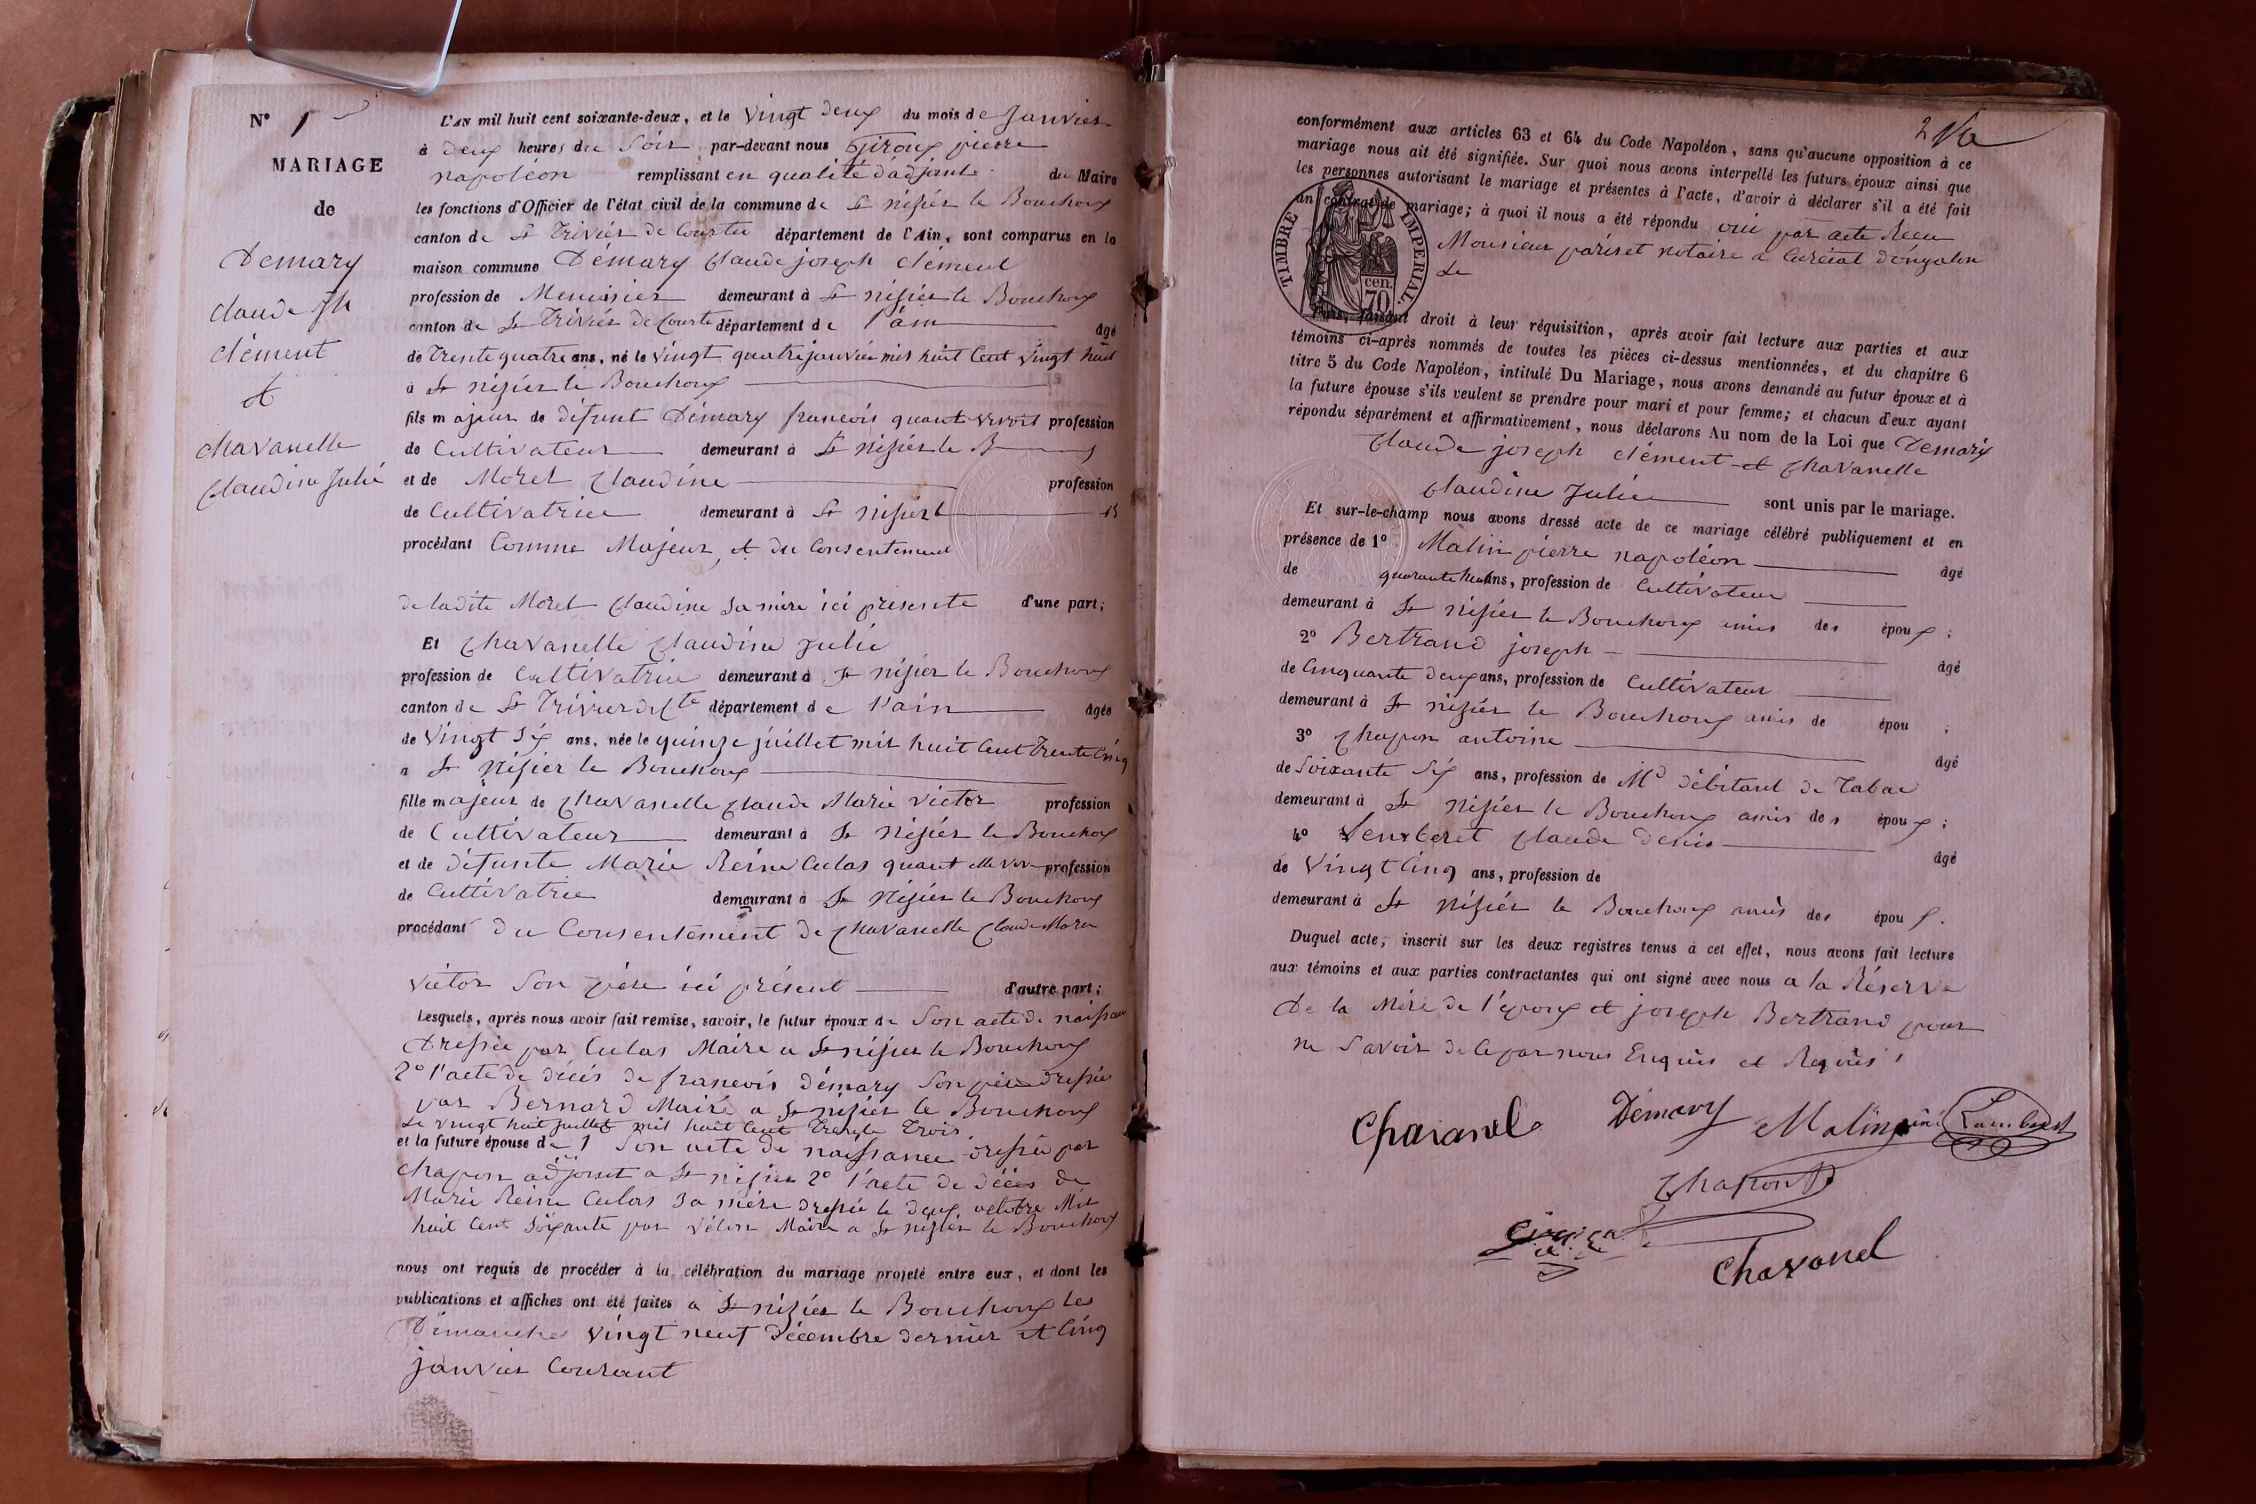 N° 1
MARIAGE
de
Démary
Claude Jh
Clément
et
Chavanelle
Claudine Julie
L'AN mil huit cent soixante-deux, et le vingt deux du mois de Janvier
à deux heures du Soir par-devant nous Giroux pierre
napoléon remplissant en qualité d'adjoint du Maire
les fonctions d'Officier de l'état civil de la commune de St nisier le Bouchoux
canton de St Trivier de Courtes département de l'Ain, sont comparus en la
maison commune Démary Claude joseph clément
profession de Menuisier demeurant à St nisier le Bouchoux
canton de St Trivier de Courte département de l'ain âgé
de Trente quatre ans, né le vingt quatre janvier mil huit Cent vingt huit
à St nisier le Bouchoux
fils majeur de défunt Démary francois quant vivoit profession
de Cultivateur demeurant à St nisier le B
et de Morel Claudine profession
de Cultivatrice demeurant à St nisier l B
procédant Comme Majeur, et du Consentement
de ladite Morel Claudine sa mère ici présente d'une part;
Et Chavanelle Claudine Julie
profession de Cultivatrice demeurant à St nisier le Bouchoux
canton de St Trivier de Cte département de l'ain âgée
de Vingt Six ans, née le quinze juillet mil huit Cent Trente Cinq
a St Nisier le Bouchoux
fille majeur de Chavanelle Claude Marie Victor profession
de Cultivateur demeurant à St Nisier le Bouchoux
et de défunte Marie Reine Culas quant elle viv profession
de Cultivatrice demeurant à St Nisier le Bouchoux
procédant du Consentement de Chavanelle Claude Marie
Victor Son père ici présent d'autre part;
Lesquels, après nous avoir fait remise, savoir, le futur époux de Son acte de naissance
Dressée par Culas Maire a St nisier le Bouchoux
2° l'acte de décés de francois démary Son père dressée
par Bernard Maire a St nisier le Bouchoux
Le vingt huit juillet mil huit Cent Trente Trois
et la future épouse de 1° Son acte de naissance dressée par
Chapon adjoint a St nisier 2° l'acte de décés de
Marie Reine Culas Sa mère dressée le deux octobre Mil
huit Cent Soixante par Maire a St nisier le Bouchoux
nous ont requis de procéder à la célébration du mariage projeté entre eux, et dont les
publications et affiches ont été faites a St nisier le Bouchoux les
Dimanches vingt neuf Décembre dernier et Cinq
janvier Courant
conformément aux articles 63 et 64 du Code Napoléon, sans qu'aucune opposition à ce
mariage nous ait été signifiée. Sur quoi nous avons interpellé les futurs époux ainsi que
les personnes autorisant le mariage et présentes à l'acte, d'avoir à déclarer s'il a été fait
un contrat de mariage; à quoi il nous a été répondu oui par acte Recu
Monsieur pariset notaire a Curciat dongalon
Le
TIMBRE IMPERIAL.
cen.
70
Puis, faisant droit à leur réquisition, après avoir fait lecture aux parties et aux
témoins ci-après nommés de toutes les pièces ci-dessus mentionnées, et du chapitre 6
titre 5 du Code Napoléon, intitulé Du Mariage, nous avons demandé au futur époux et à
la future épouse s'ils veulent se prendre pour mari et pour femme; et chacun d'eux ayant
répondu séparément et affirmativement, nous déclarons Au nom de la Loi que Demary
Claude joseph clément et Chavanelle
Claudine Julie sont unis par le mariage.
Et sur-le-champ nous avons dressé acte de ce mariage célébré publiquement et en
présence de 1° Malin pierre napoléon âgé
de quarante huit ans, profession de Cultivateur
demeurant à St nisier le Bouchoux amis des époux;
2° Bertrand joseph âgé
de Cinquante deux ans, profession de Cultivateur
demeurant à St nisier le Bouchoux amis de épou ;
3° Chapon antoine âgé
de Soixante Six ans, profession de Md débitant de Tabac
demeurant à St Nisier le Bouchoux amis des époux;
4° claude Denis âgé
de Vingt Cinq ans, profession de
demeurant à St Nisier le Bouchoux amis des époux.
Duquel acte, inscrit sur les deux registres tenus à cet effet, nous avons fait lecture
aux témoins et aux parties contractantes qui ont signé avec nous a la Réserve
De la Mère de l'époux et joseph Bertrand pour
ne Savoir de Ce par nous Enquis et Requis
Chavanel Démary Malin ainé Lambert
Chapon
Chavanel